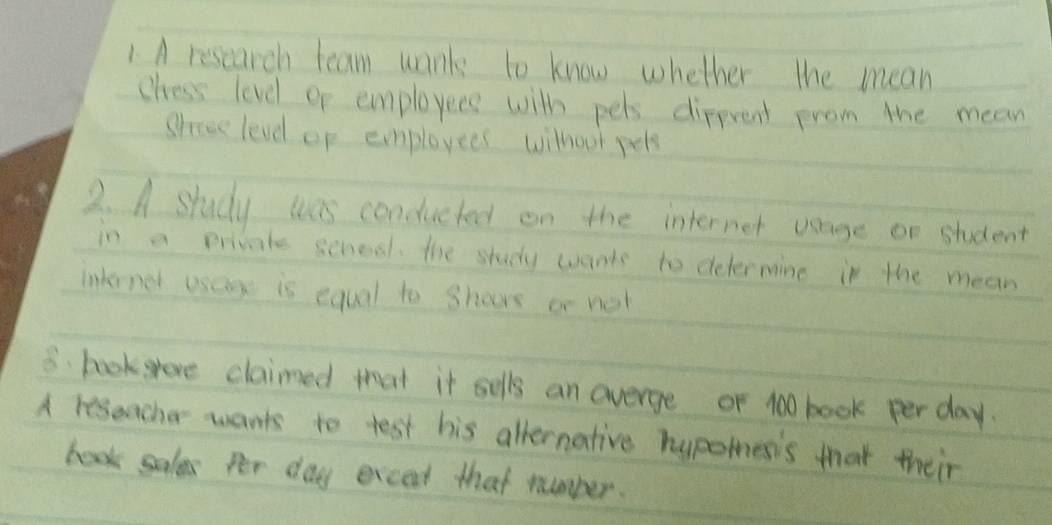 1. A research team wants to know whether the mean
stress level of employees with pets diffrent from the mean
stress level of employees without pets
2. A study was conducted on the internet usage of student
in a private school. the study wants to determine if the mean
internet usage is equal to 3 hours or not
3. bookstore claimed that it sells an averge of 100 book per day.
A reseacher wants to test his alternative hypothesis that their
book sales per day exceed that number.